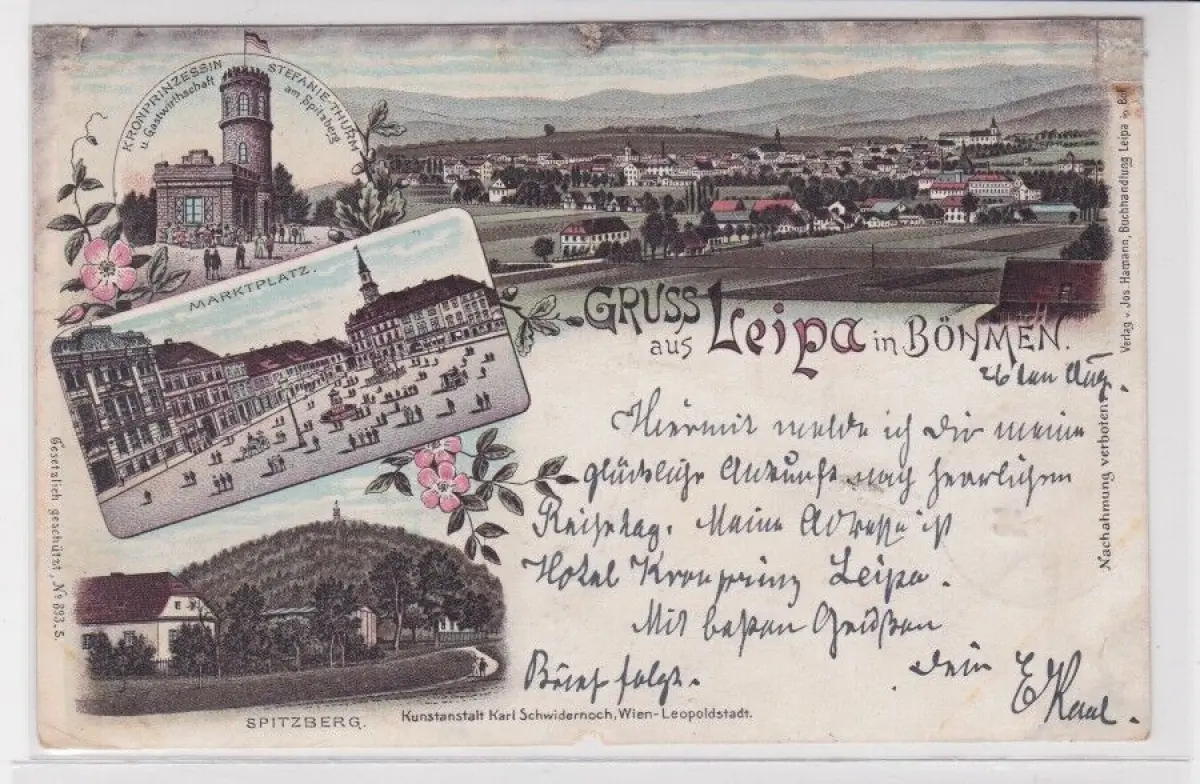 KRONPRINZESSIN STEFANIE-THURM
u. Gastwirthschaft am Spitzberg
MARKTPLATZ.
GRUSS
aus Leipa in BÖHMEN.
26 ten Aug.
Hiermit melde ich Dir meine
glückliche Ankunft nach herrlichem
Reisetag. Meine Adresse ist
Hotel Kronprinz Leipa.
Mit besten Grüßen
Dein E
Brief folgt.
SPITZBERG.
Kunstanstalt Karl Schwidernoch, Wien-Leopoldstadt.
Gesetzlich geschützt, No 893. S.
Verlag v. Jos. Hamann, Buchhandlung Leipa i. Böh
Nachahmung verboten